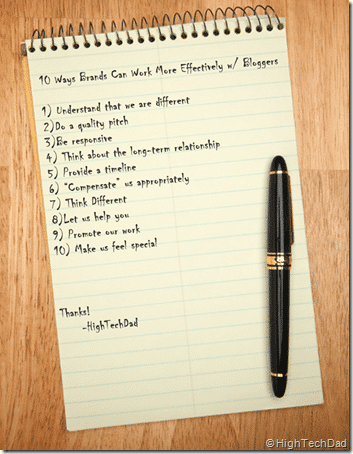 10 Ways Brands Can Work More Effectively w/ Bloggers
1) Understand that we are different
2)Do a quality pitch
3)Be responsive
4) Think about the long-term relationship
5) Provide a timeline
6) "Compensate" us appropriately
7) Think Different
8)Let us help you
9) Promote our work
10) Make us feel special
Thanks!
-HighTechDad
©HighTechDad